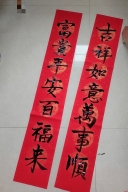 吉祥如意萬事順
富貴平安百福来